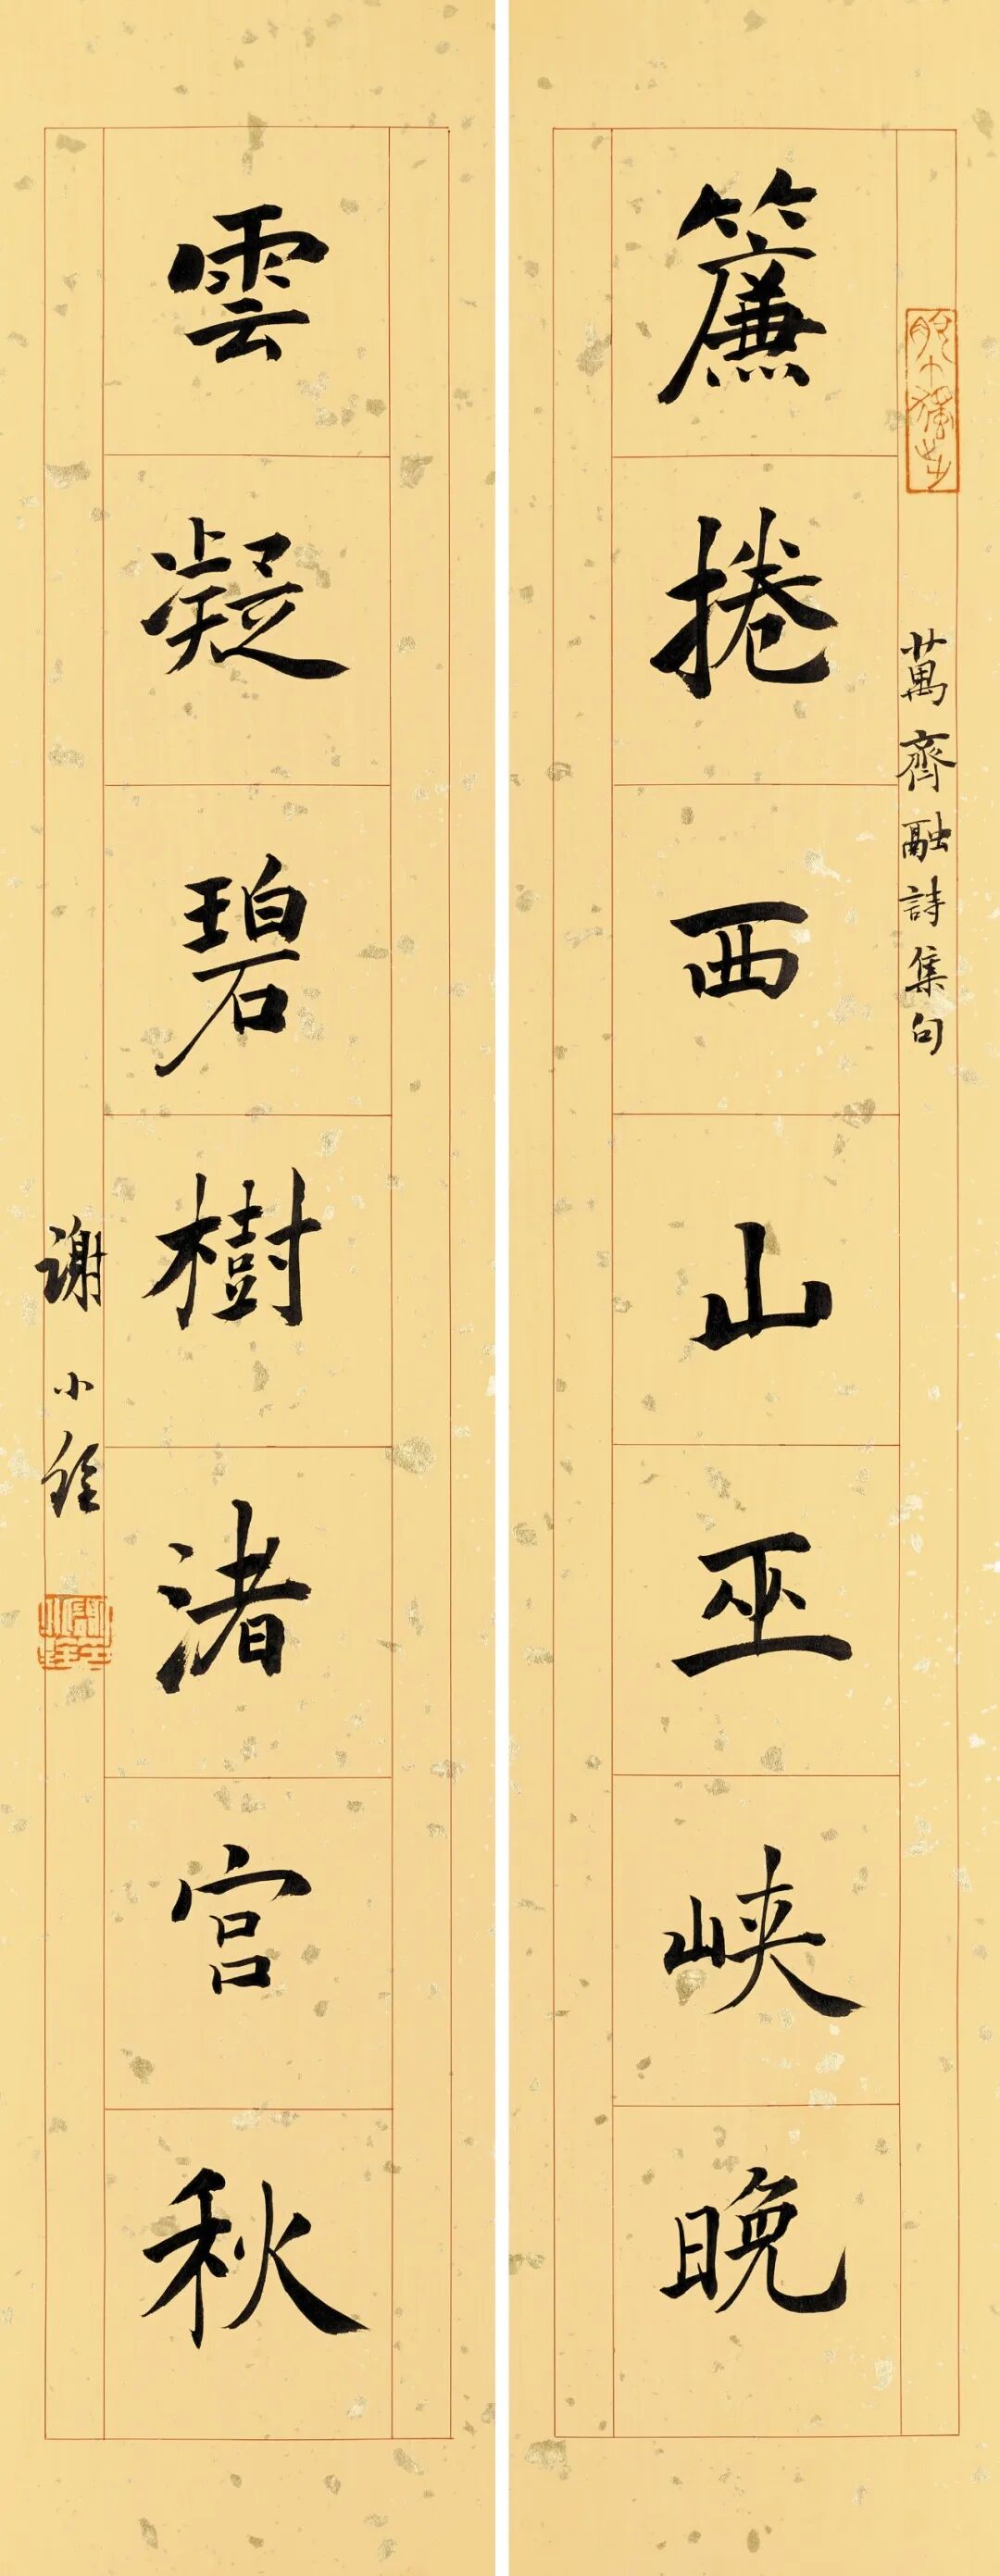 萬齊融詩集句
簾捲西山巫峽晚
雲凝碧樹渚宮秋
謝小銓